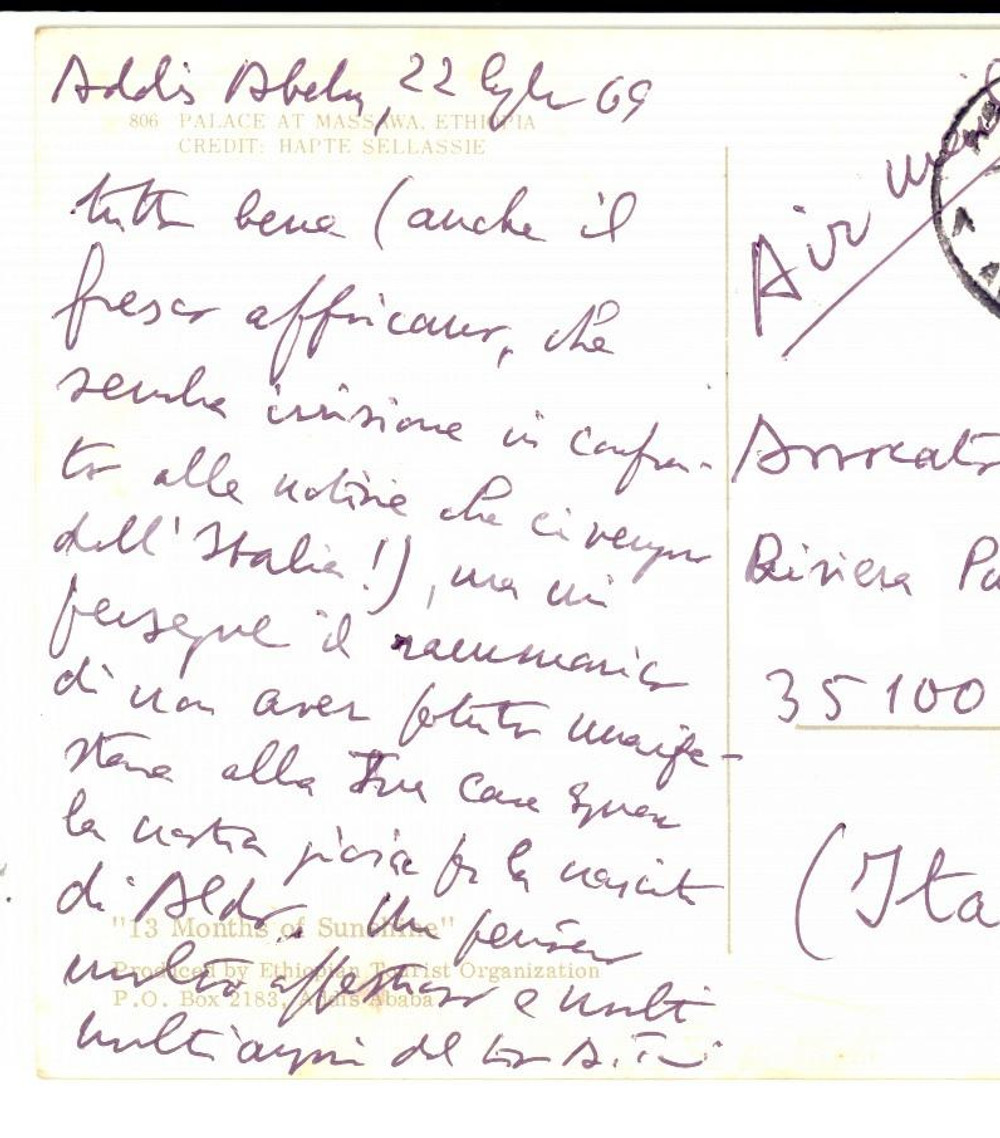 Addis Abeba, 22 luglio 69
806 PALACE AT MASSAWA, ETHIOPIA
CREDIT: HAPTE SELLASSIE
tutto bene (anche il
fresco affricano, che
sembra irrisione in confron-
to alle notizie che ci vengono
dall'Italia!), ma mi
persegue il rammarico
di non aver potuto manife-
stare alla Tua cara
la nostra gioia per la nascita
di Aldo. Un pensiero
molto affettuoso e molti
molti auguri dal tuo
"13 Months of Sunshine"
Produced by Ethiopian Tourist Organization
P.O. Box 2183, Addis Ababa
Air mail
Avvocato
Riviera Pa
35100
(Ita